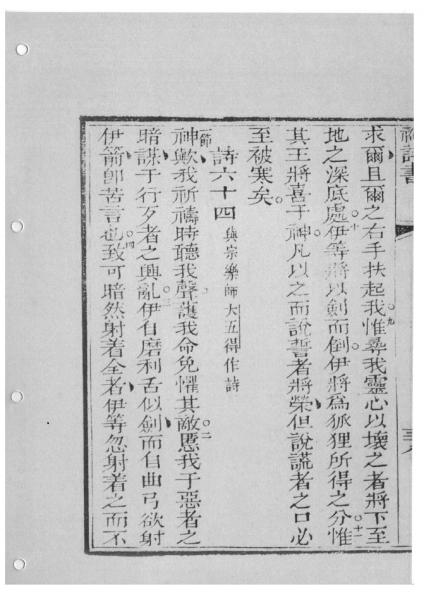 求爾且爾之右手扶起我惟尋我靈心以壞之者將下至
地之深底處伊等將以劍而倒伊將為狐狸所得之分惟
其王將喜于神凡以之而說誓者將榮但說謊者之口必
至被塞矣
詩六十四 與宗樂師大五得作詩
神歟我祈禱時聽我聲護我命免懼其敵匿我于惡者之
暗謀于行歹者之興亂伊自磨利舌似劍而自曲弓欲射
伊箭卽苦言也致可暗然射着全者伊等忽射着之而不